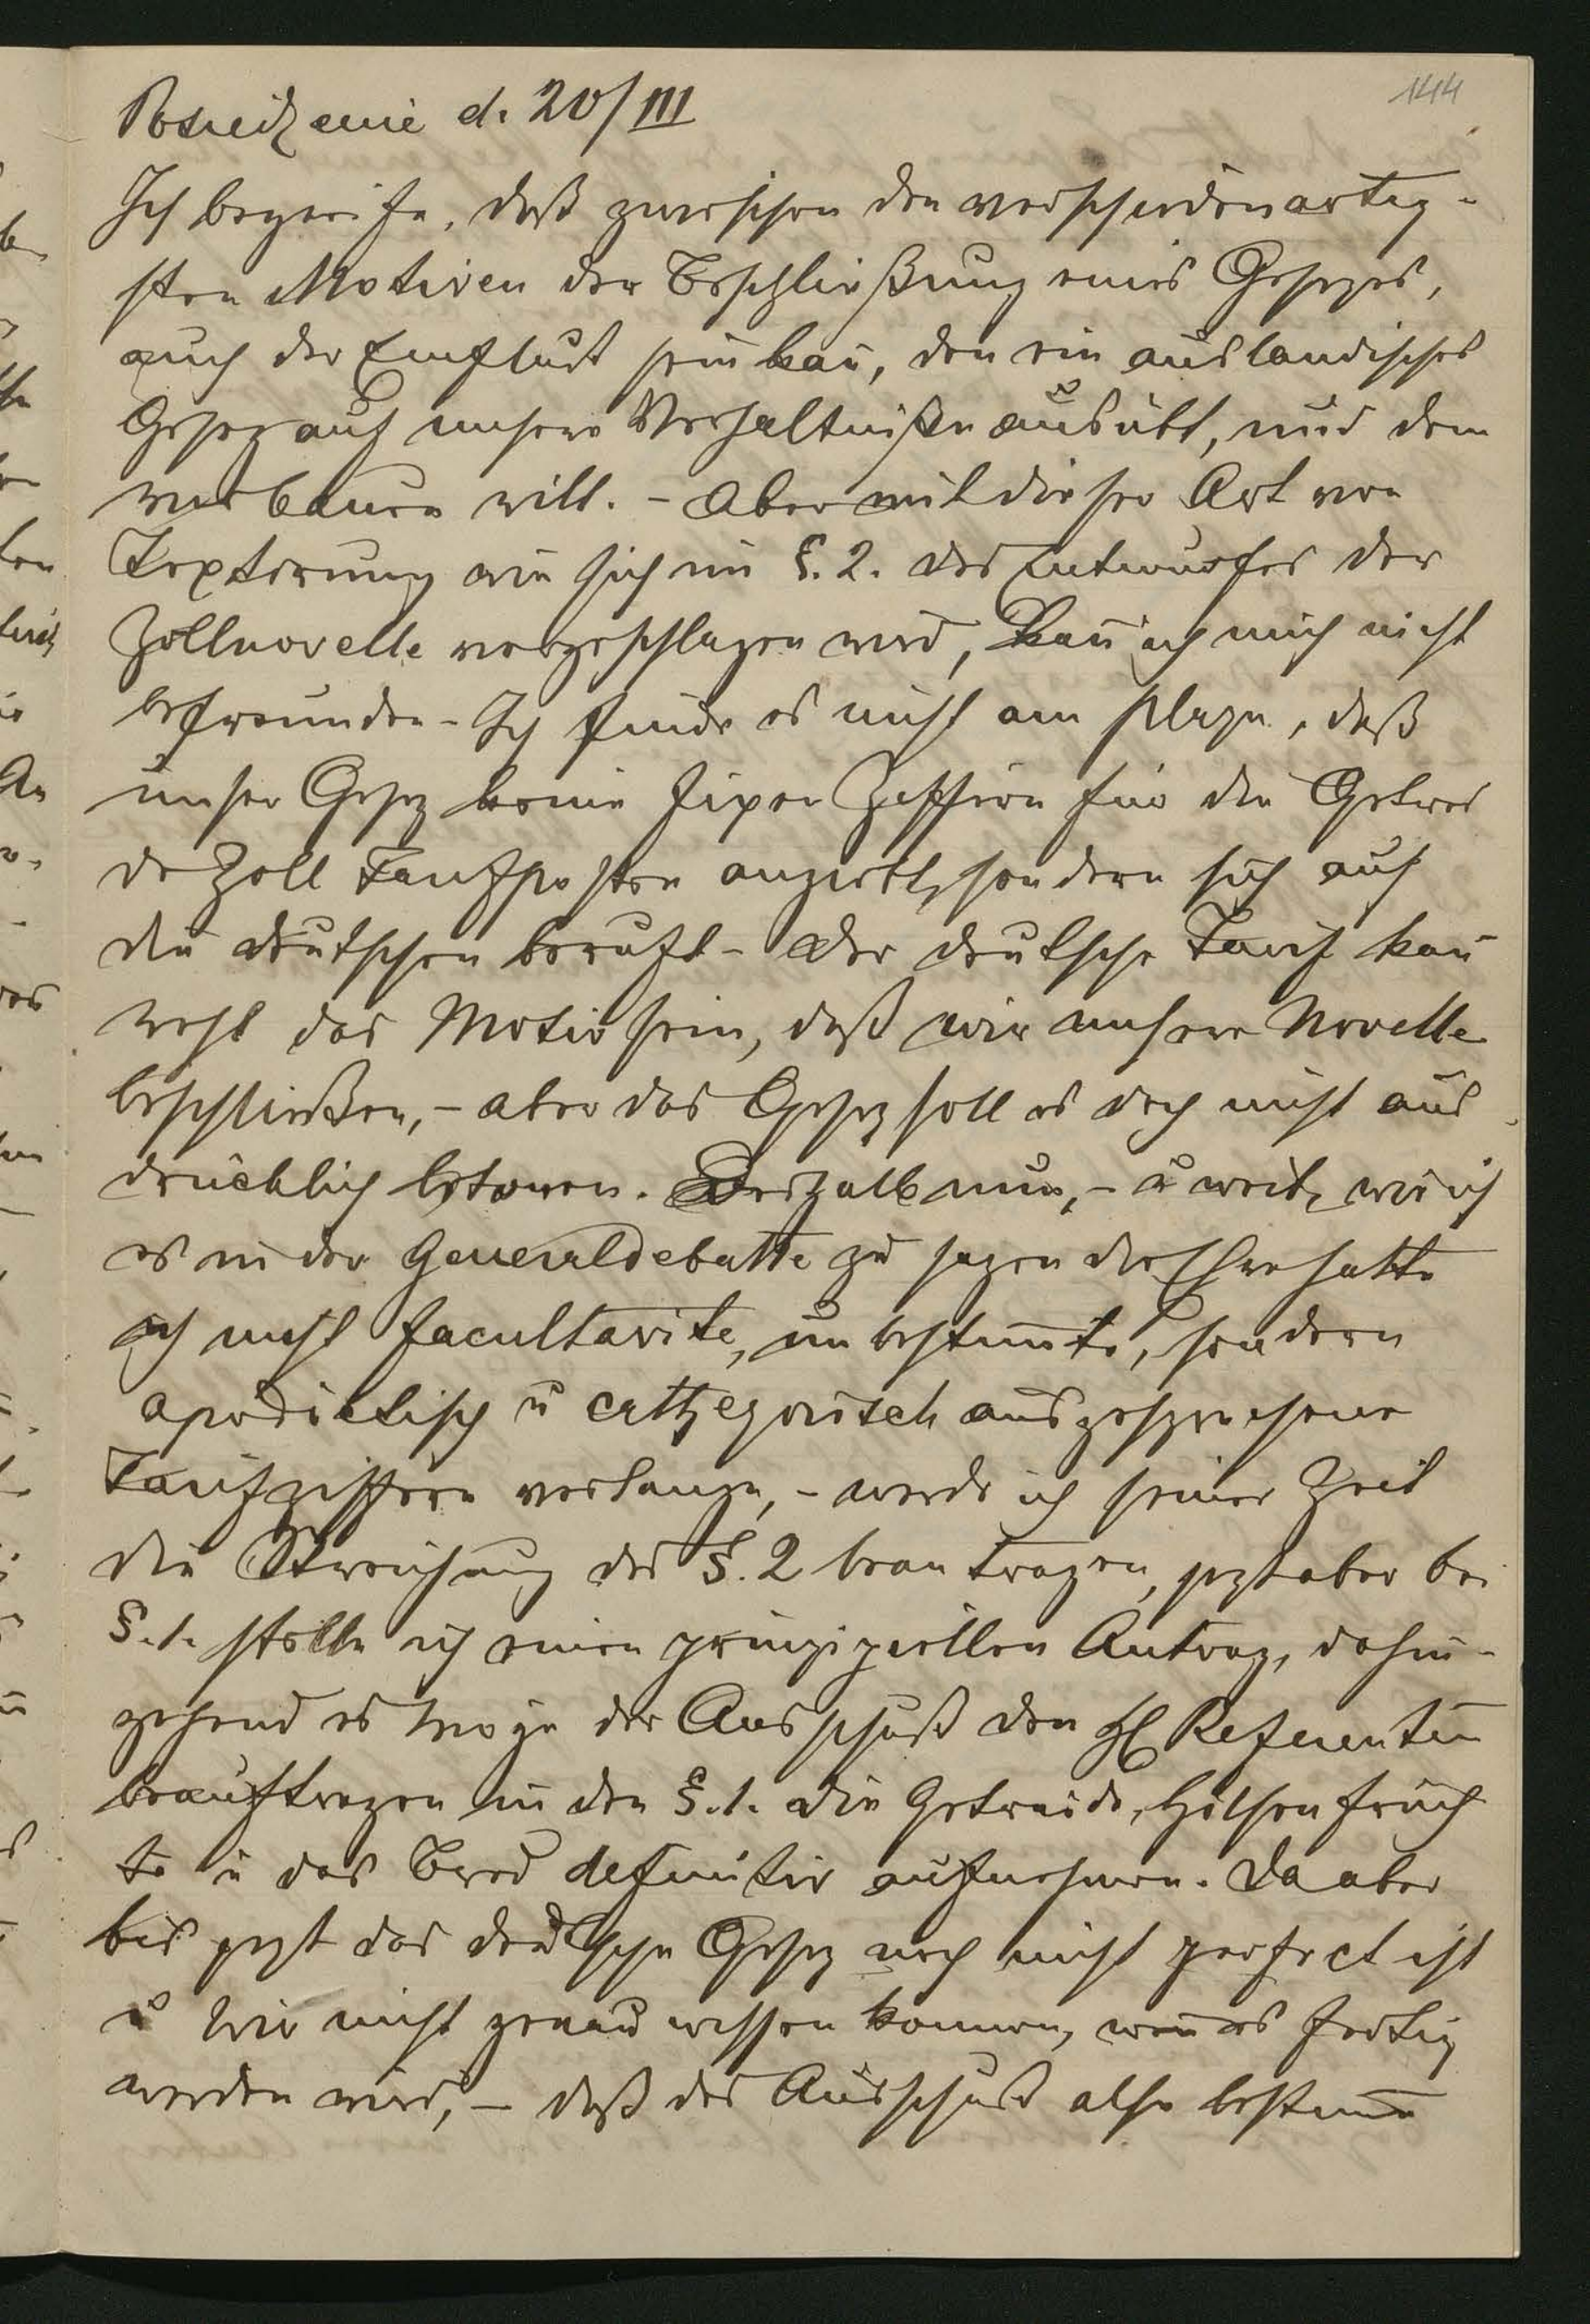 144
Posiedzenie d. 20/III
Ich begreife, daß zwischen den verschiedenartig-
sten Motiven der Beschließung eines Gesezes,
auch der Einfluß sein kañ, den ein ausländisches
Gesez auf unsere Verhältniße ausübt, und dem
will. - Aber mit dieser Art von
Textirung wie sich im §. 2. des Entwurfes der
Zollnovelle vorgeschlagen wird, kañ ich mich nicht
befreunden - Ich finde es nicht am plaze, daß
unser Gesez keine fixen Ziffern für die Getrei
de Zoll Tarifposten anzieht, sondern sich auf
die deutschen beruft - Der deutsche Tarif kañ
wohl das Motiv sein, daß wir unsere Novelle
beschließen, - aber das Gesez soll es doch nicht aus
drücklich betonen. Deshalb nun, - u weil, wie ich
es in der Generaldebatte zu sagen die Ehre hatte
ich nicht facultavite, unbestim̄te, sondern
apodictisch u cathegorisch ausgesprochene
Tarifziffern verlange, - werde ich seiner Zeit
die Streichung des §. 2 beantragen, jezt aber bei
§. 1. stelle ich einen prinzipiellen Antrag, dahin-
gehend es möge der Ausschuß den H Referenten
beauftragen in den §. 1. die Getreide, Hülsenfrüch
te u das Brod definitiv aufnehmen. Da aber
bis jezt das deutsche Gesez noch nicht perfect ist
u wir nicht genau wissen können, wañ es fertig
werden wird, - daß der Ausschuß also bestim̄e